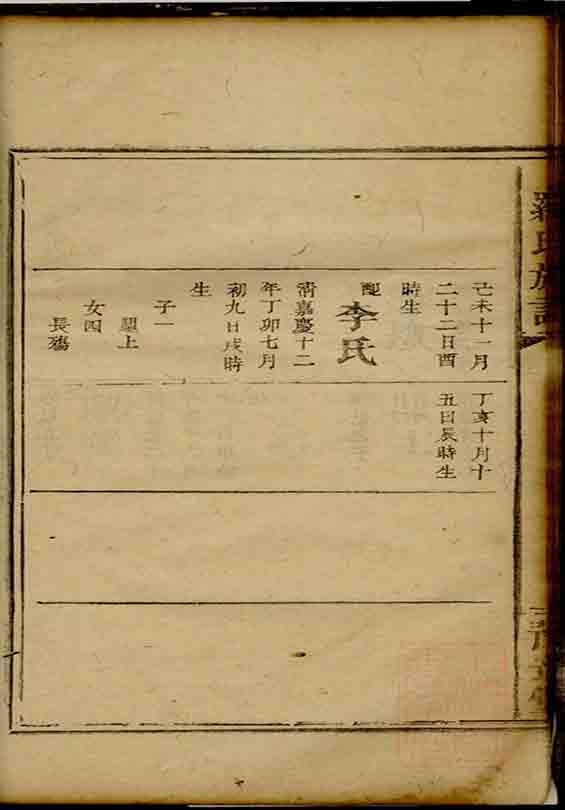 羅氏族譜
己未十一月
二十二日酉
時生
配 李氏
清嘉慶十二
年丁卯七月
初九日戌時
生
子一
顯上
女四
長殤
丁亥十月十
五日辰時生